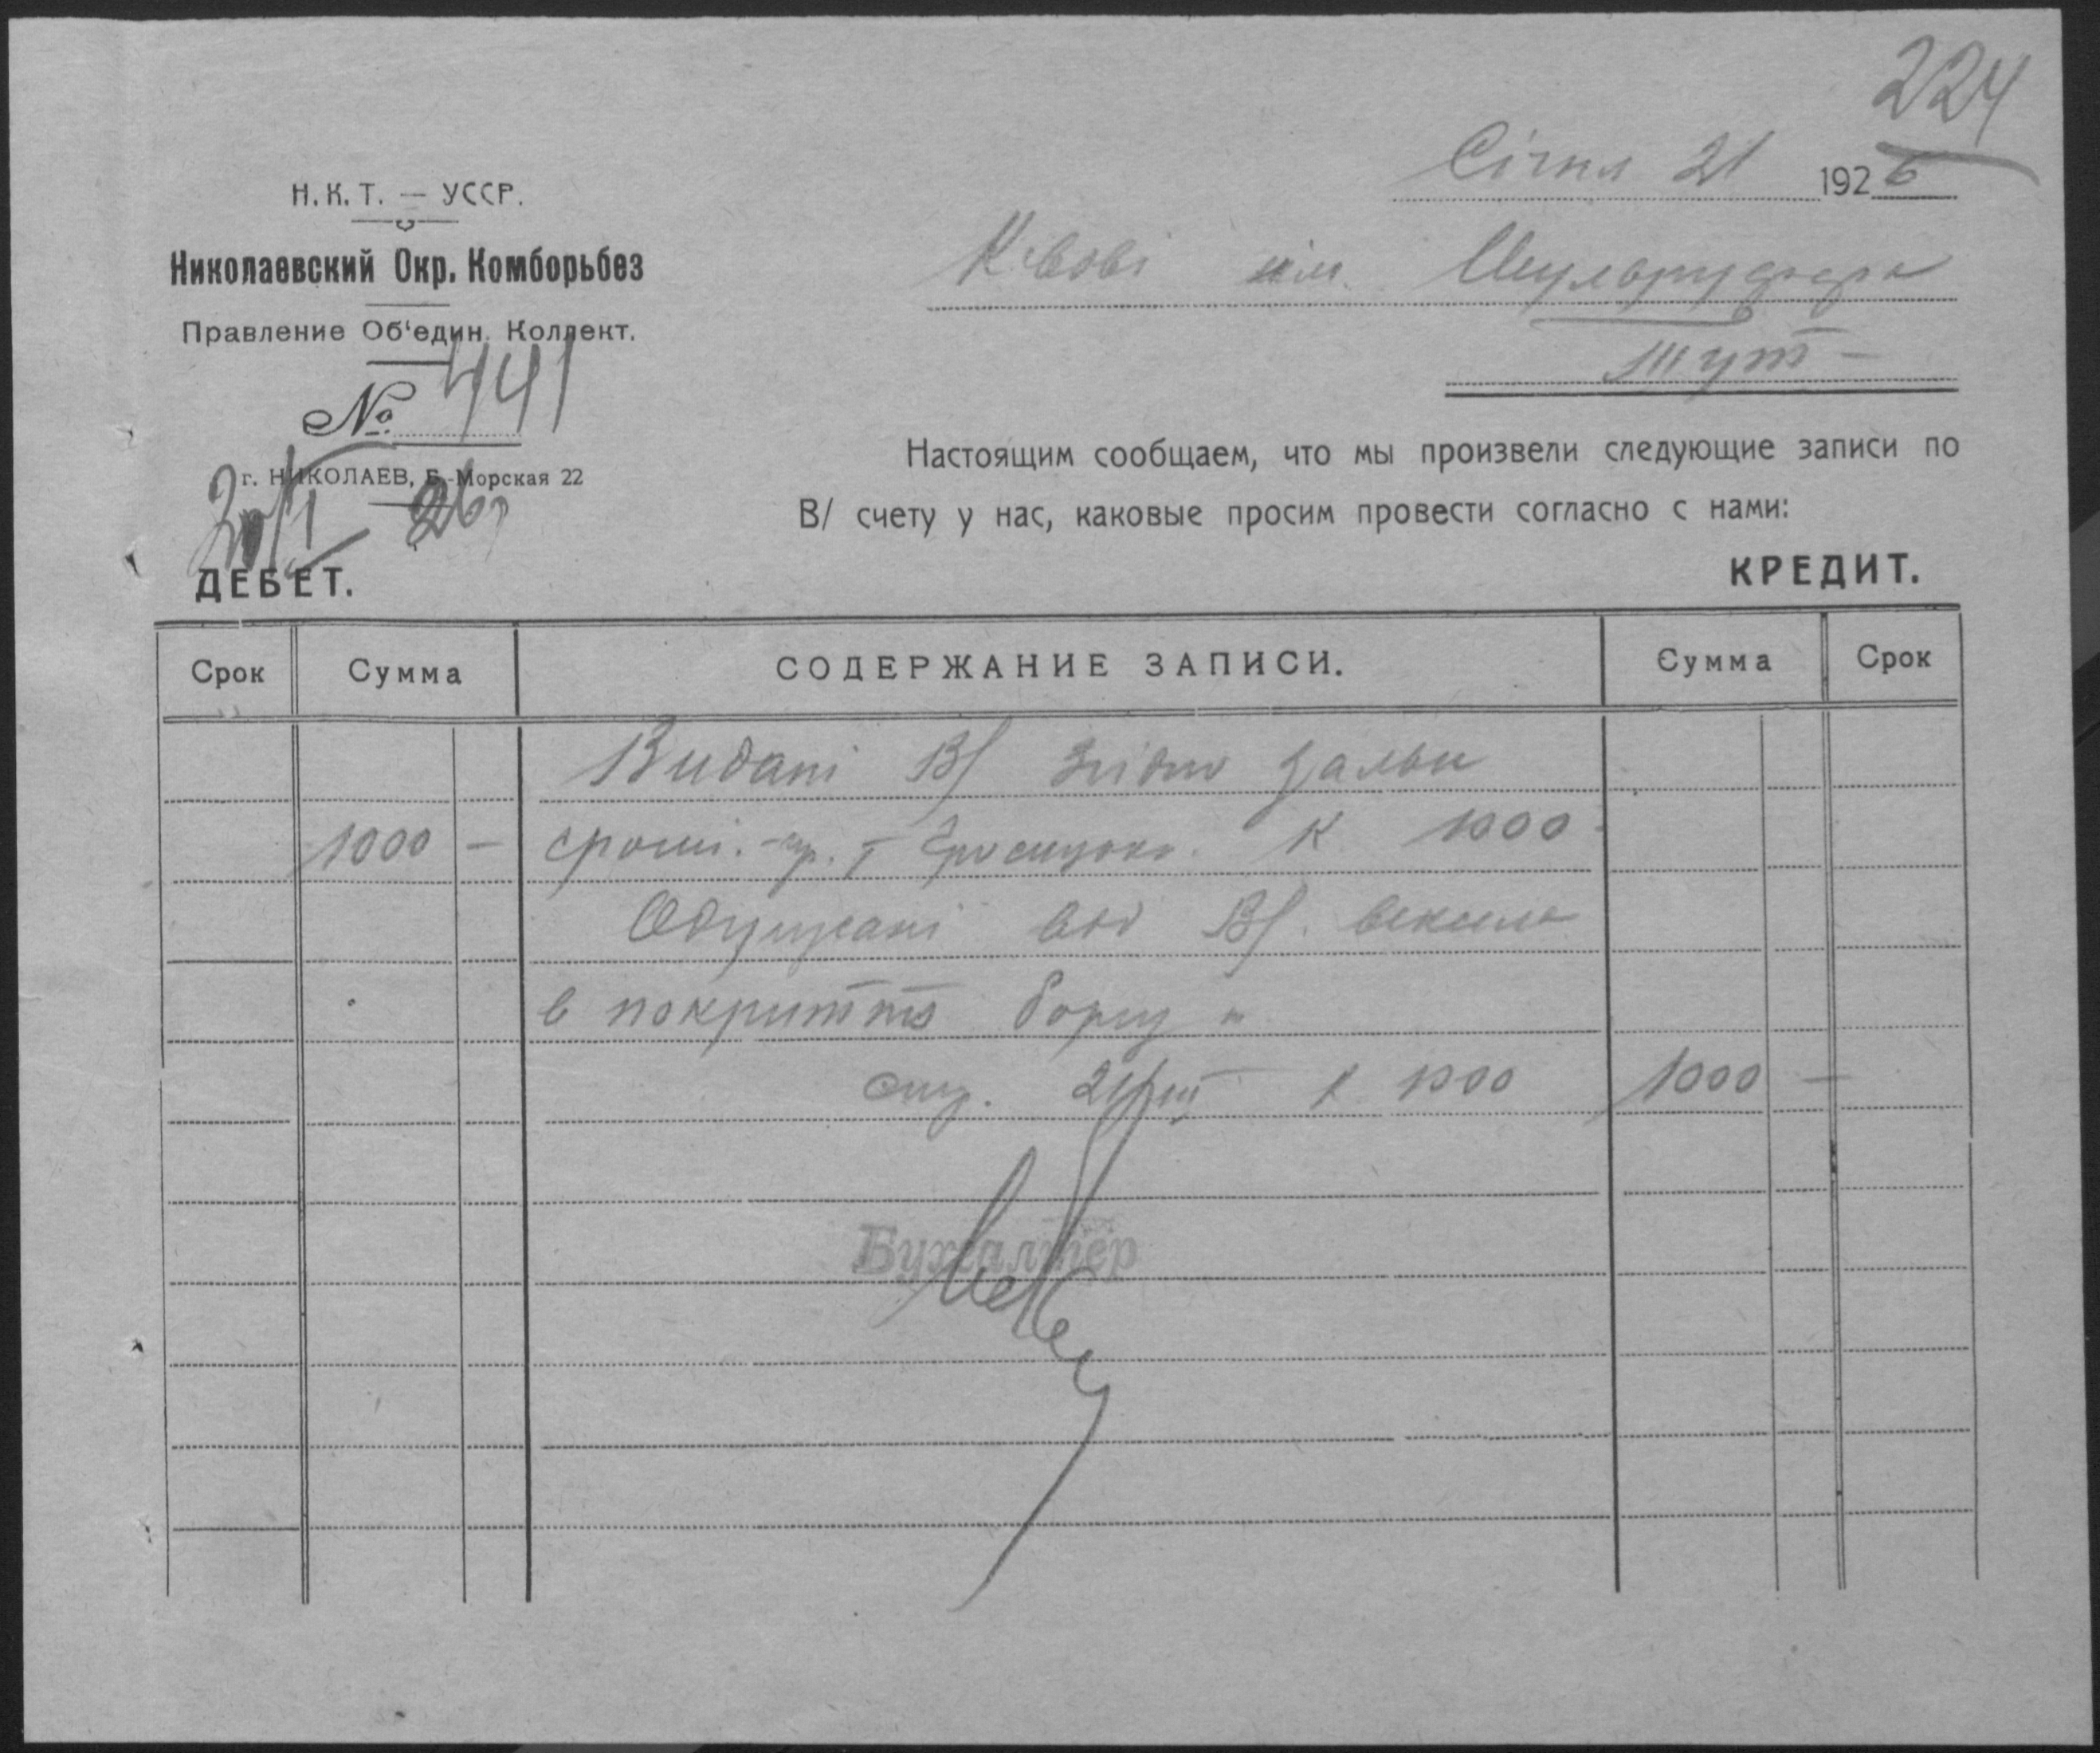 224
Січня 21 1926
Н.К.Т. — УССР.
Николаевский Окр. Комборьбез
Правление Об'един. Коллект.
№ 441
г. НИКОЛАЕВ, Б.-Морская 22
20/I 26
К-вові ім.
тут
Настоящим сообщаем, что мы произвели следующие записи по
В/ счету у нас, каковые просим провести согласно с нами:
ДЕБЕТ. КРЕДИТ.
Срок Сумма СОДЕРЖАНИЕ ЗАПИСИ. Сумма Срок
Видані В/ згідно
1000 — К 1000
Одержані від В/. векселя
в покриття боргу
21/III К 1000 1000 —
Бухгалтер